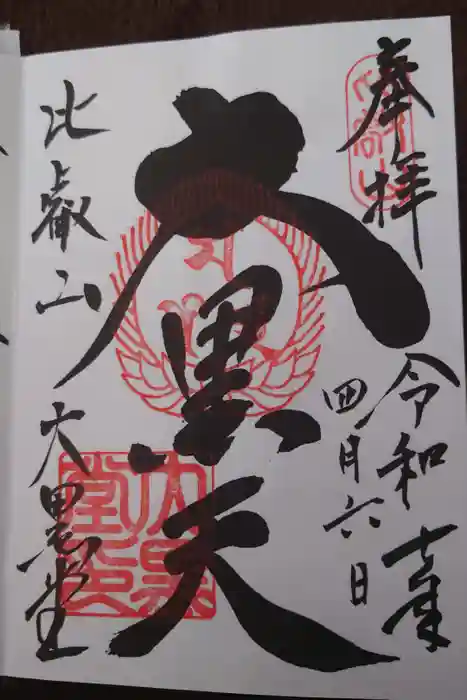 奉拝
令和七年
四月六日
大黒天
比叡山 大黒堂
比叡山
大黒堂印